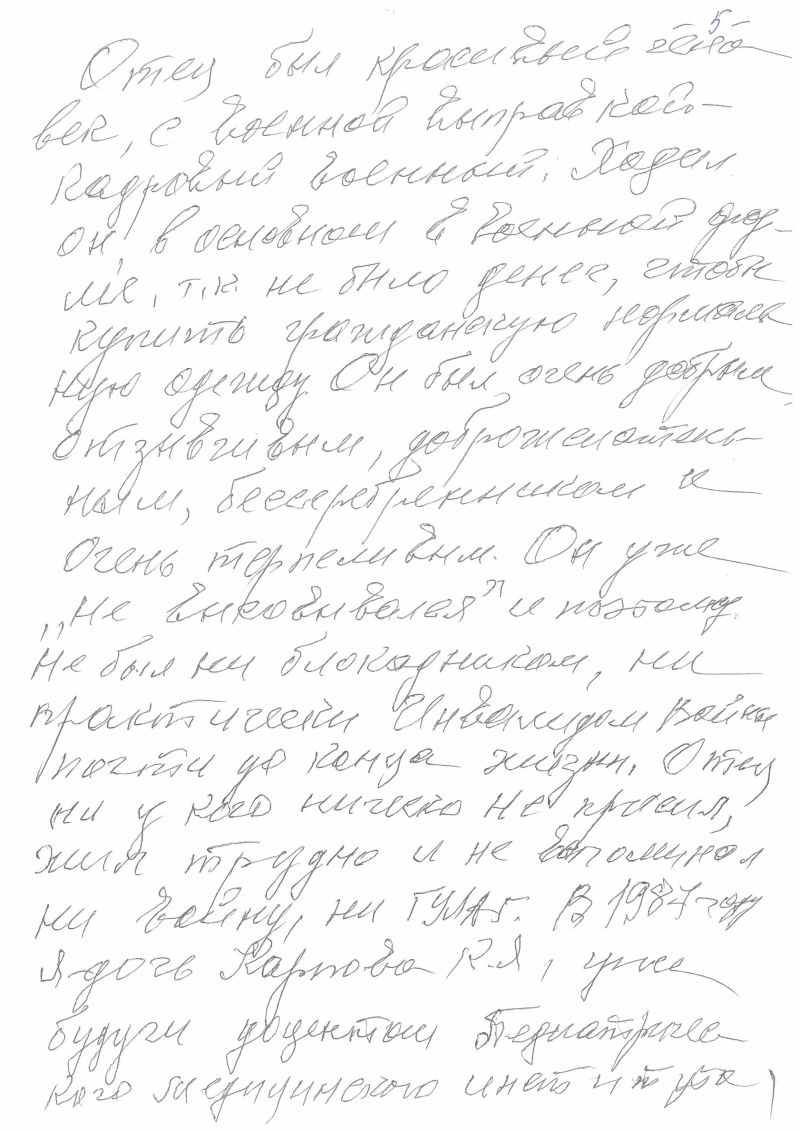 5
Отец был красивый чело-
век, с военной выправкой-
кадровый военный. Ходил
он, в основном в военной фор-
ме, т.к. не было денег, чтобы
купить гражданскую нормаль
ную одежду. Он был очень добрым,
отзывчивым, доброжелатель-
ным, бессеребренником и
очень терпеливым. Он уже
„не высовывался" и поэтому
не был ни блокадником, ни
практически Инвалидом войны
почти до конца жизни. Отец
ни у кого ничего не просил,
жил трудно и не вспоминал
ни войну, ни ГУЛАГ. В 1987 году
я-дочь Карпова К.Я, уже
будучи доцентом Педиатричес
кого медицинского института,